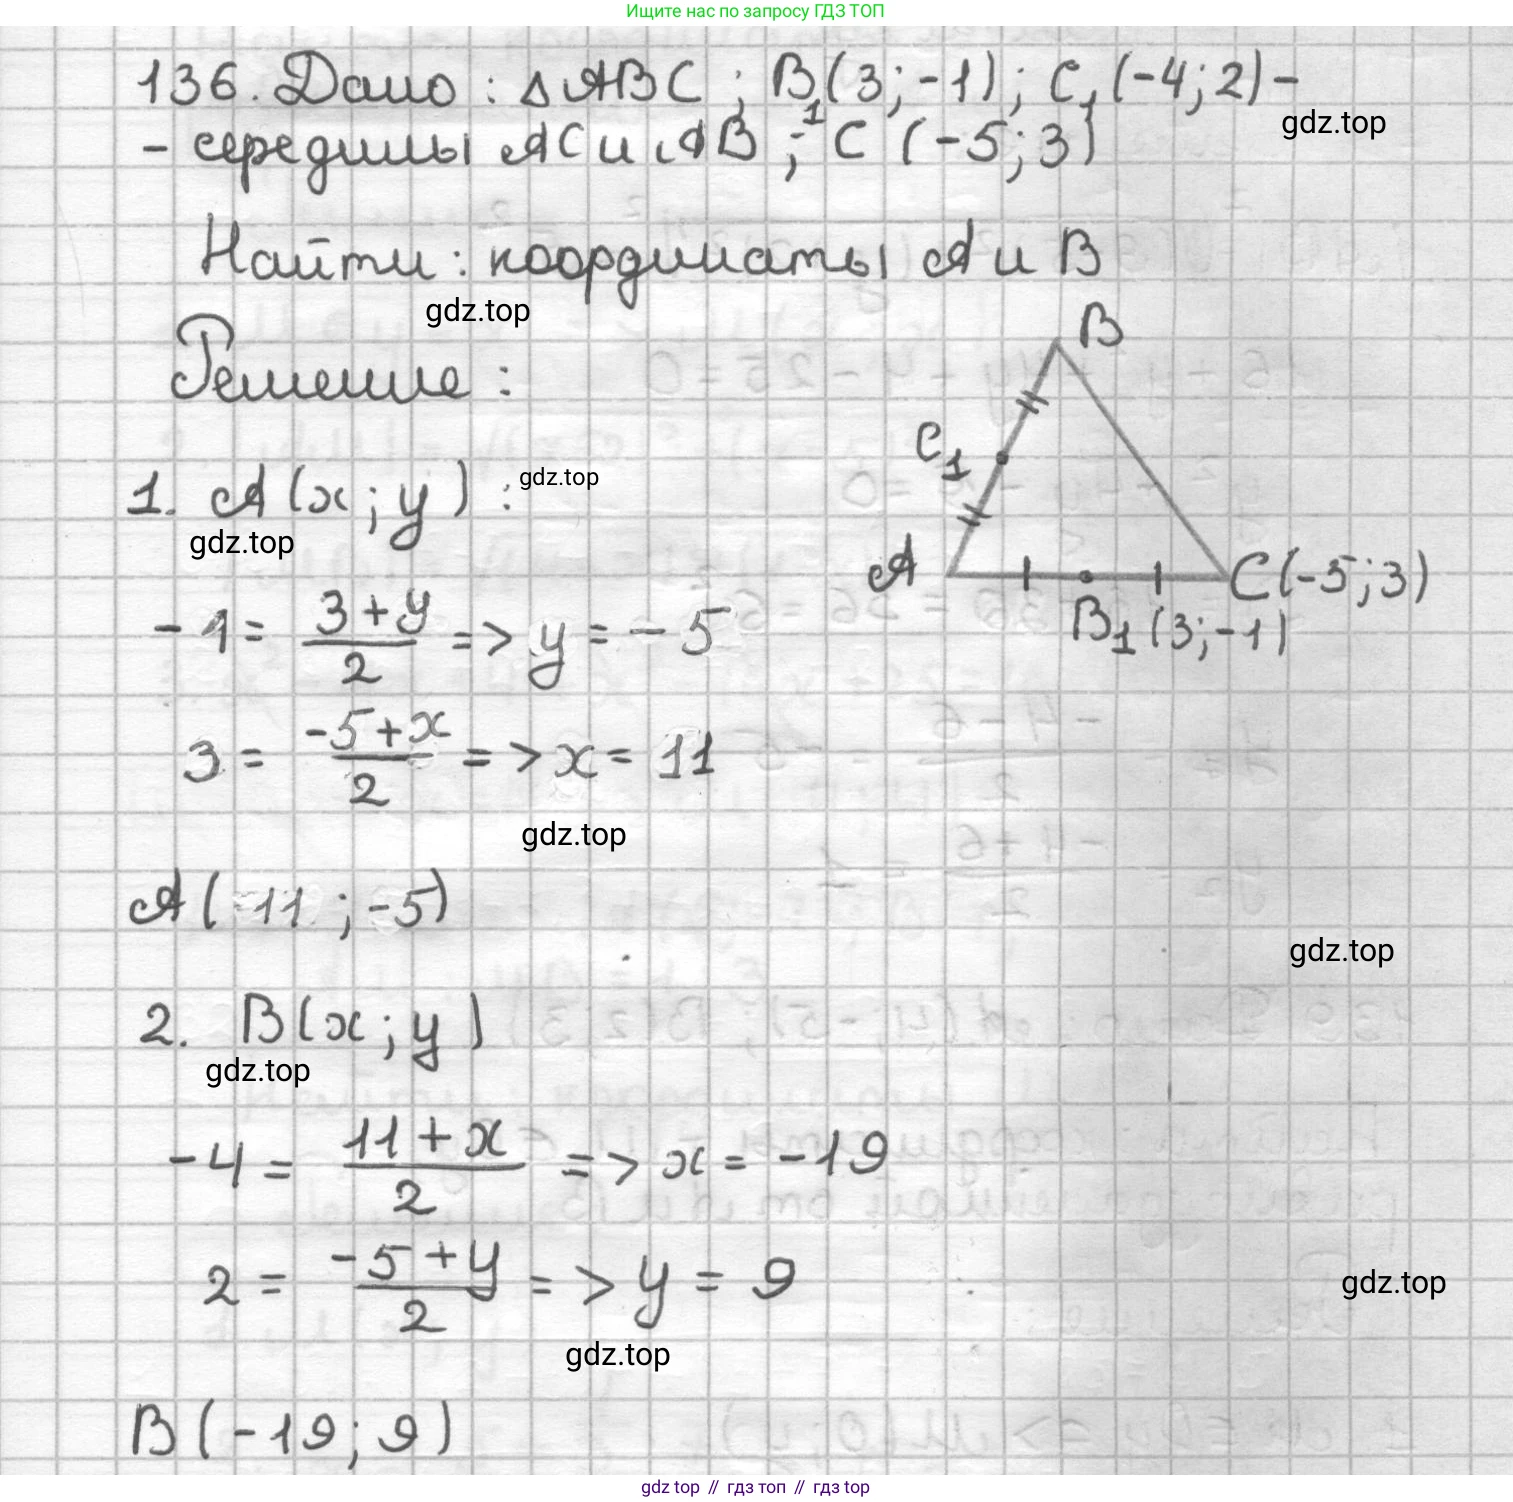 Ищите нас по запросу ГДЗ ТОП
136. Дано: △ABC; B₁(3;-1); C₁(-4;2)-
gdz.top
- середины AC и AB; C(-5;3)
Найти: координаты A и B
gdz.top
Решение:
B
C₁
A
C(-5;3)
B₁(3;-1)
1. A(x;y):
gdz.top
gdz.top
-1 = (3+y)/2 => y = -5
3 = (-5+x)/2 => x = 11
gdz.top
A(11;-5)
gdz.top
2. B(x;y)
gdz.top
-4 = (11+x)/2 => x = -19
2 = (-5+y)/2 => y = 9
gdz.top
gdz.top
B(-19;9)
gdz.top // гдз топ // гдз.top